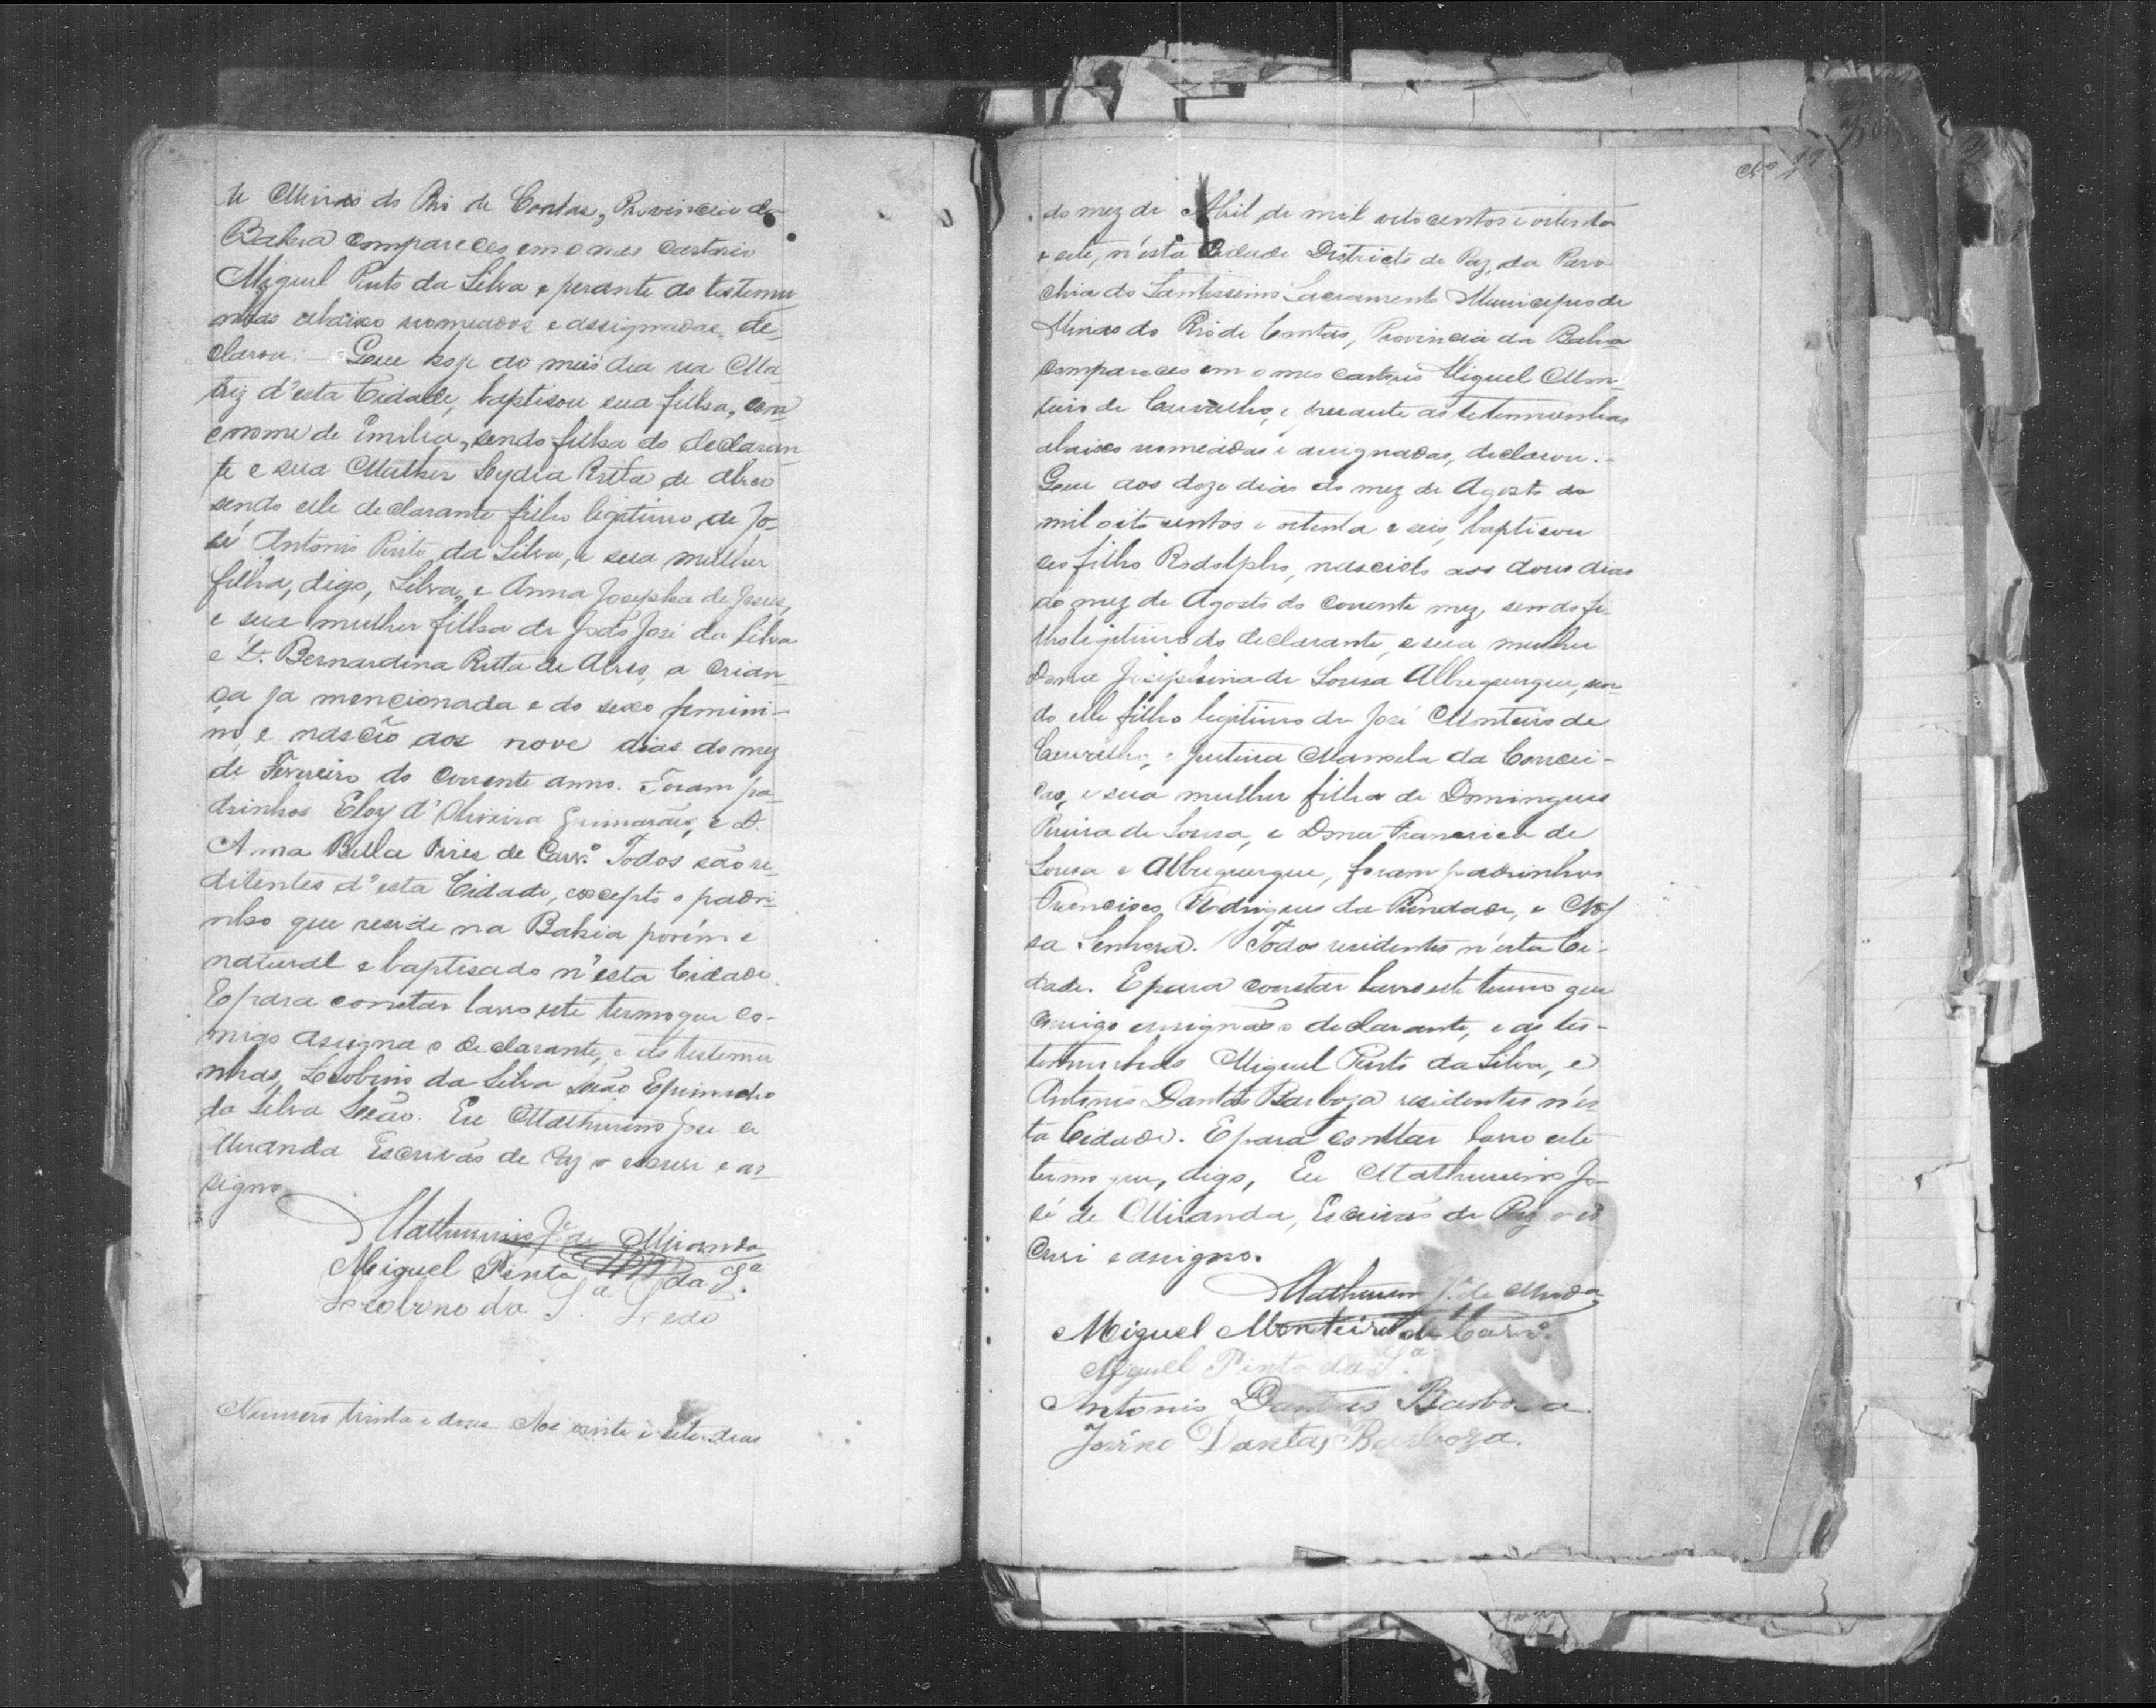 de Minas do Rio de Contas, Provincia da
Bahia compareceo em o meo cartorio
Miguel Pinto da Silva e perante as testemu
nhas abaixo nomeados e assignadas, de_
clarou: — Que hoje ao meio dia na Ma_
triz d'esta Cidade, baptisou sua filha, com
o nome de Emilia, sendo filha do declaran_
te e sua Mulher Lydia Ritta de Abreo
sendo elle declarante filho legitimo de Jo_
sé Antonio Pinto da Silva, e sua mulher
filha, digo, Silva, e Anna Josepha de Jesus,
e sua mulher filha de João José da Silva
e D. Bernardina Ritta de Abreo, a crian_
ça ja mencionada e do sexo femini_
no, e nasceo aos nove dias do mez
de Fevereiro do corrente anno. Foram pa_
drinhos Eloy d'Oliveira Guimarães, e D.
Anna Bella Pires de Carvº. Todos são re_
ditentes d'esta Cidade, excepto o padri_
nho que reside na Bahia porém e
natural e baptisado n'esta Cidade.
E para constar lavro este termo que co-
migo assigna o declarante, e as testemu
nhas, Leobino da Silva Leão
da Silva Leão. Eu Mathurino José de
Miranda Escrivão de Paz o escrevi e as_
signo.
Mathurino Je de Miranda
Miguel Pinto da Sª
Leobino da Sª Leão
Numero trinta e dous Aos vinte e sete dias
Nº
do mez de Abril de mil oito centos e oitenta
e sete, n'esta Cidade Districto de Paz, da Paro
chia do Santissimo Sacramento Municipio de
Minas do Rio de Contas, Provincia da Bahia
compareceo em o meo cartorio Miguel Mon_
teiro de Carvalho, e perante as testemunhas
abaixo nomeadas e assignadas, declarou. -
Que aos doze dias do mez de Agosto de
mil oito centos e oitenta e seis, baptisou
seo filho Rodolpho, nascido aos dous dias
do mez de Agosto do corrente mez, sendo fi_
lho legitimo do declarante, e sua mulher
Dona Josephina de Sousa Albuquerque, sen_
do elle filho legitimo de José Monteiro de
Carvalho, e Justina Manoela da Concei-
ção, e sua mulher filha de Domingues
Pereira de Sousa, e Dona Francisca de
Sousa e Albuquerque, foram padrinhos
Francisco Rodrigues da Trindade, e Nos
sa Senhora. Todos residentes n'esta Ci-
dade. E para constar lavro este termo que
comigo assignão o declarante, e as tes-
temunhas Miguel Pinto da Silva, e
Antonio Dantas Barboza residentes n'es
ta Cidade. E para constar lavro este
termo que, digo, Eu Mathurino Jo_
sé de Miranda, Escrivão de Paz o es
crevi e assigno.
Mathurino Je de Mirda
Miguel Monteiro de Carvº.
Miguel Pinto da Sª
Antonio Dantas Barboza.
Jovine Dantas Barboza.